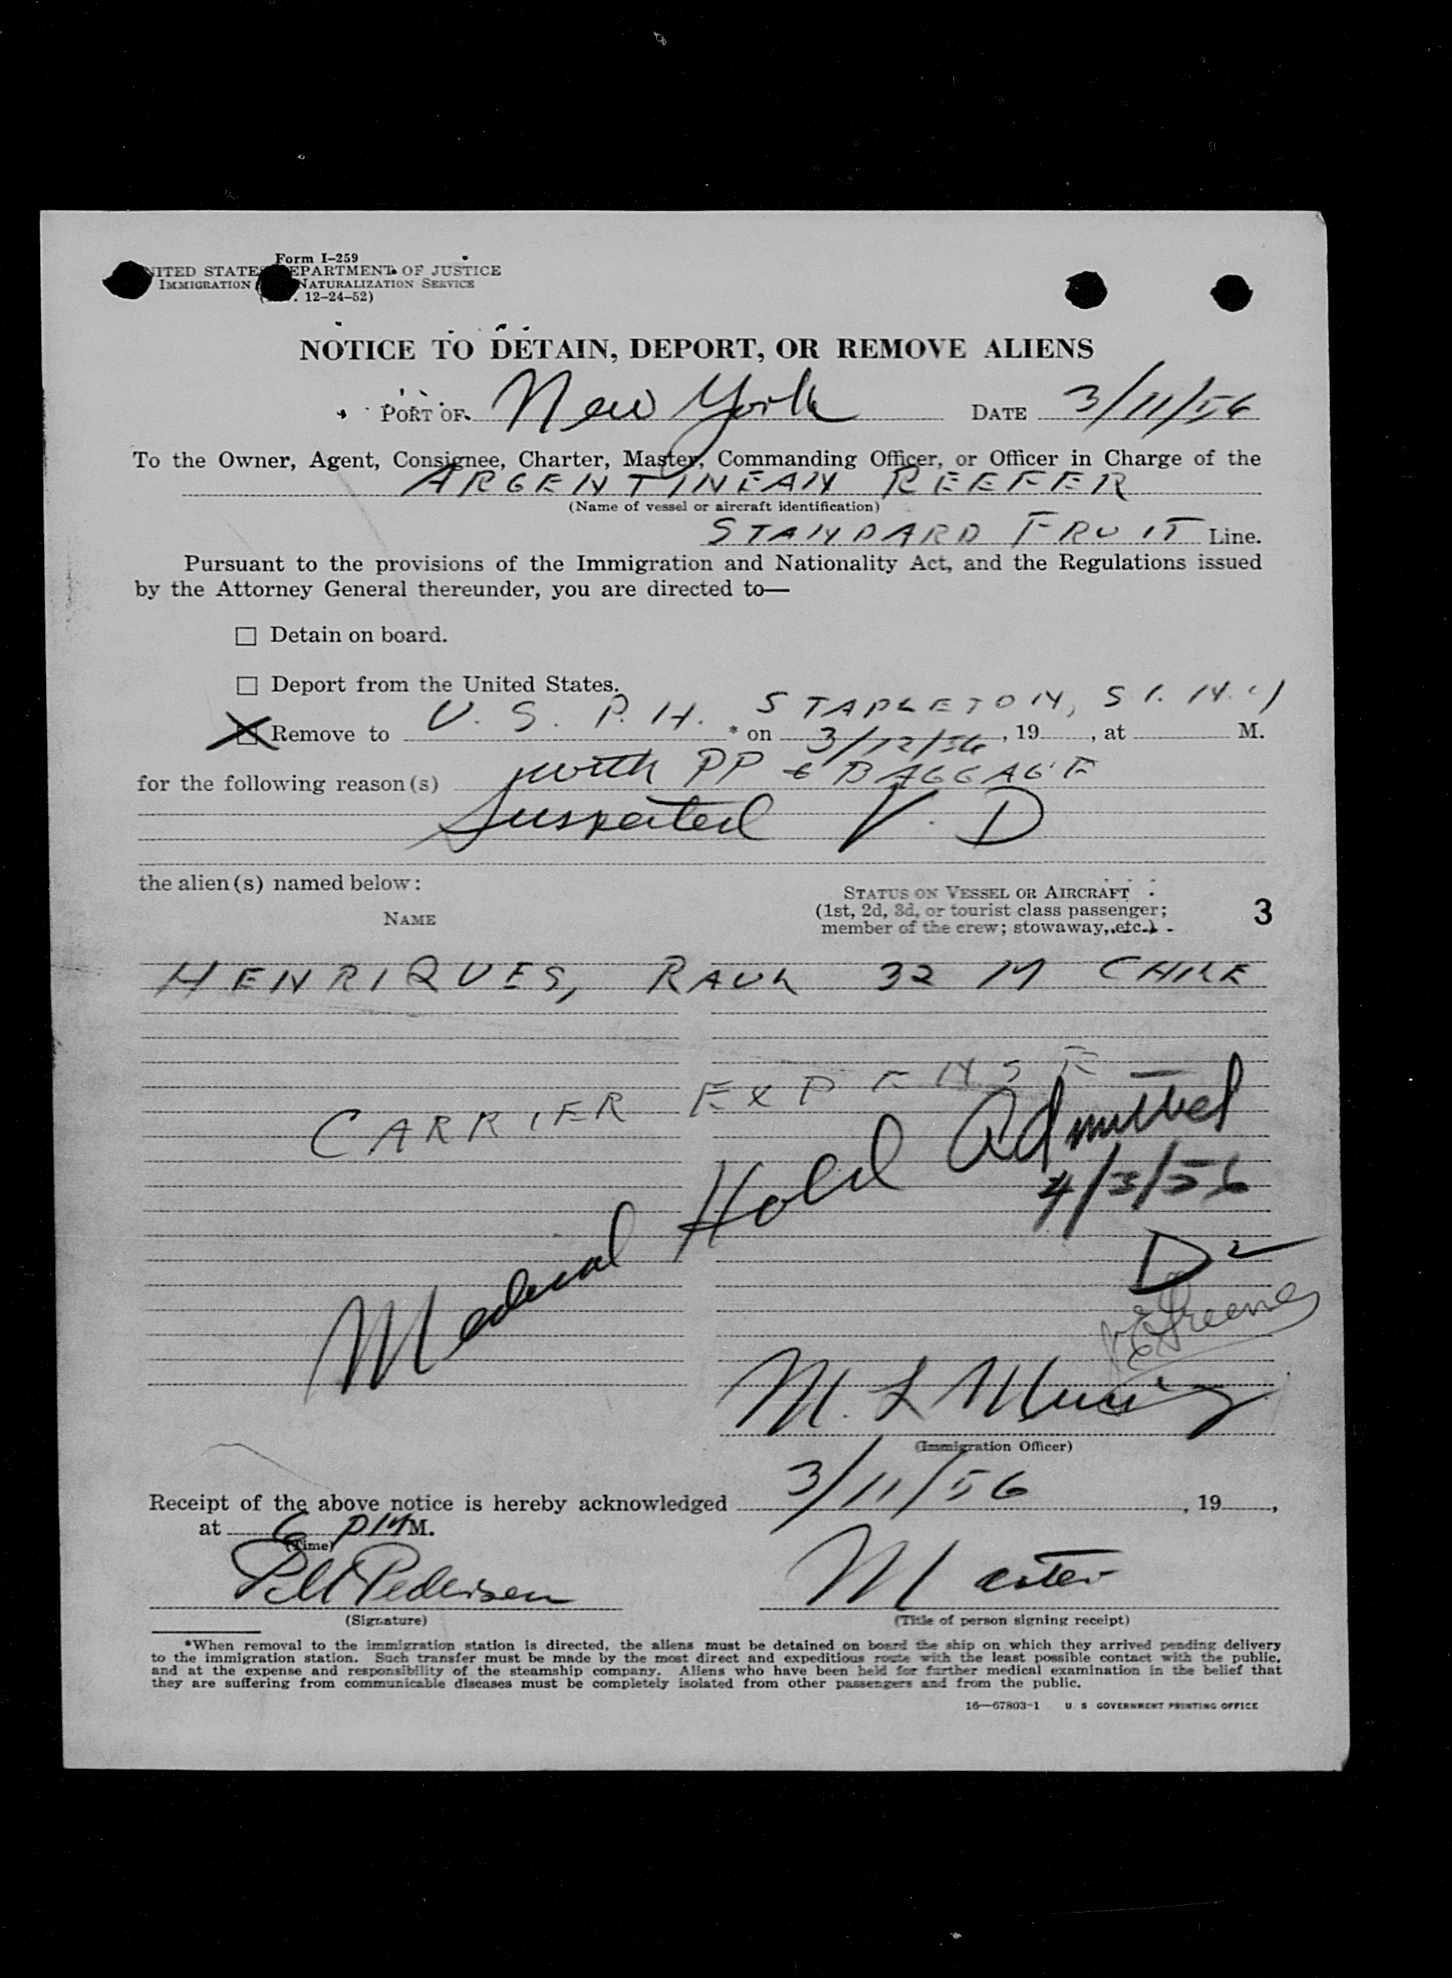 Form I-259
UNITED STATES DEPARTMENT OF JUSTICE
IMMIGRATION NATURALIZATION SERVICE
12-24-52)
NOTICE TO DETAIN, DEPORT, OR REMOVE ALIENS
PORT OF New York DATE 3/11/56
To the Owner, Agent, Consignee, Charter, Master, Commanding Officer, or Officer in Charge of the
ARGENTINEAN REEFER
(Name of vessel or aircraft identification)
STANDARD FRUIT Line.
Pursuant to the provisions of the Immigration and Nationality Act, and the Regulations issued
by the Attorney General thereunder, you are directed to—
☐ Detain on board.
☐ Deport from the United States.
☒ Remove to U. S. P. H. STAPLETON, S I. N.Y * on 3/12/56, 19, at M.
for the following reason(s) with PP & BAGGAGE
Suspected V. D
the alien(s) named below:
NAME
STATUS ON VESSEL OR AIRCRAFT
(1st, 2d, 3d, or tourist class passenger;
member of the crew; stowaway, etc.)
3
HENRIQUES, RAUL 32 M CHILE
CARRIER EXPENSE
Medical Hold Admitted
4/3/56
D2
Greene
M. L
(Immigration Officer)
Receipt of the above notice is hereby acknowledged 3/11/56, 19,
at 6 PM M.
(Time)
Pedersen
Master
(Signature)
(Title of person signing receipt)
*When removal to the immigration station is directed, the aliens must be detained on board the ship on which they arrived pending delivery
to the immigration station. Such transfer must be made by the most direct and expeditious route with the least possible contact with the public,
and at the expense and responsibility of the steamship company. Aliens who have been held for further medical examination in the belief that
they are suffering from communicable diseases must be completely isolated from other passengers and from the public.
16—67803-1 U S GOVERNMENT PRINTING OFFICE